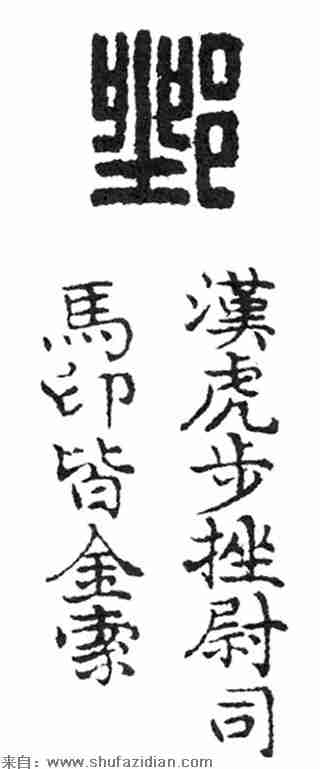 漢虎步挫尉司
馬印皆金索
来自：www.shufazidian.com